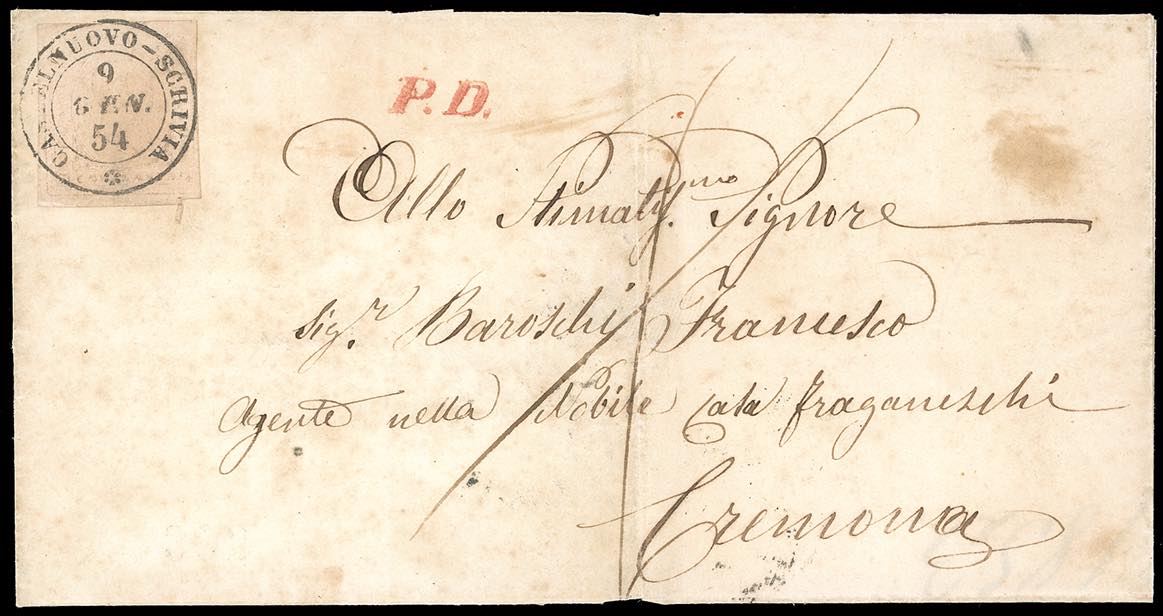 CASTELNUOVO-SCRIVIA
9
GEN.
54
P.D.
Allo Stimatiss.mo Signore
Sig.r Baroschi Francesco
Agente nella Nobile Casa Fraganeschi
Cremona